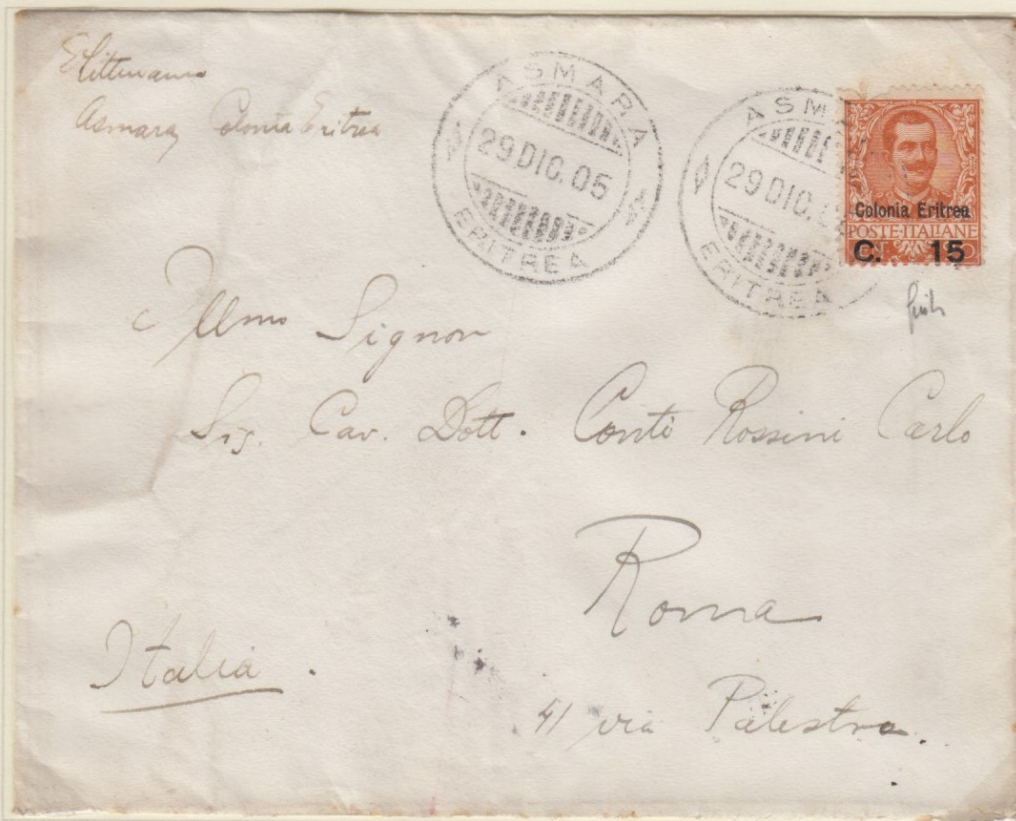 Asmara Colonia Eritrea
ASMARA
29 DIC. 05
ERITREA
ASM
29 DIC.
ERITREA
Colonia Eritrea
POSTE·ITALIANE
C. 15
Illmo Signor
Sig. Cav. Dott. Conti Rossini Carlo
Roma
Italia.
41 via Palestro.